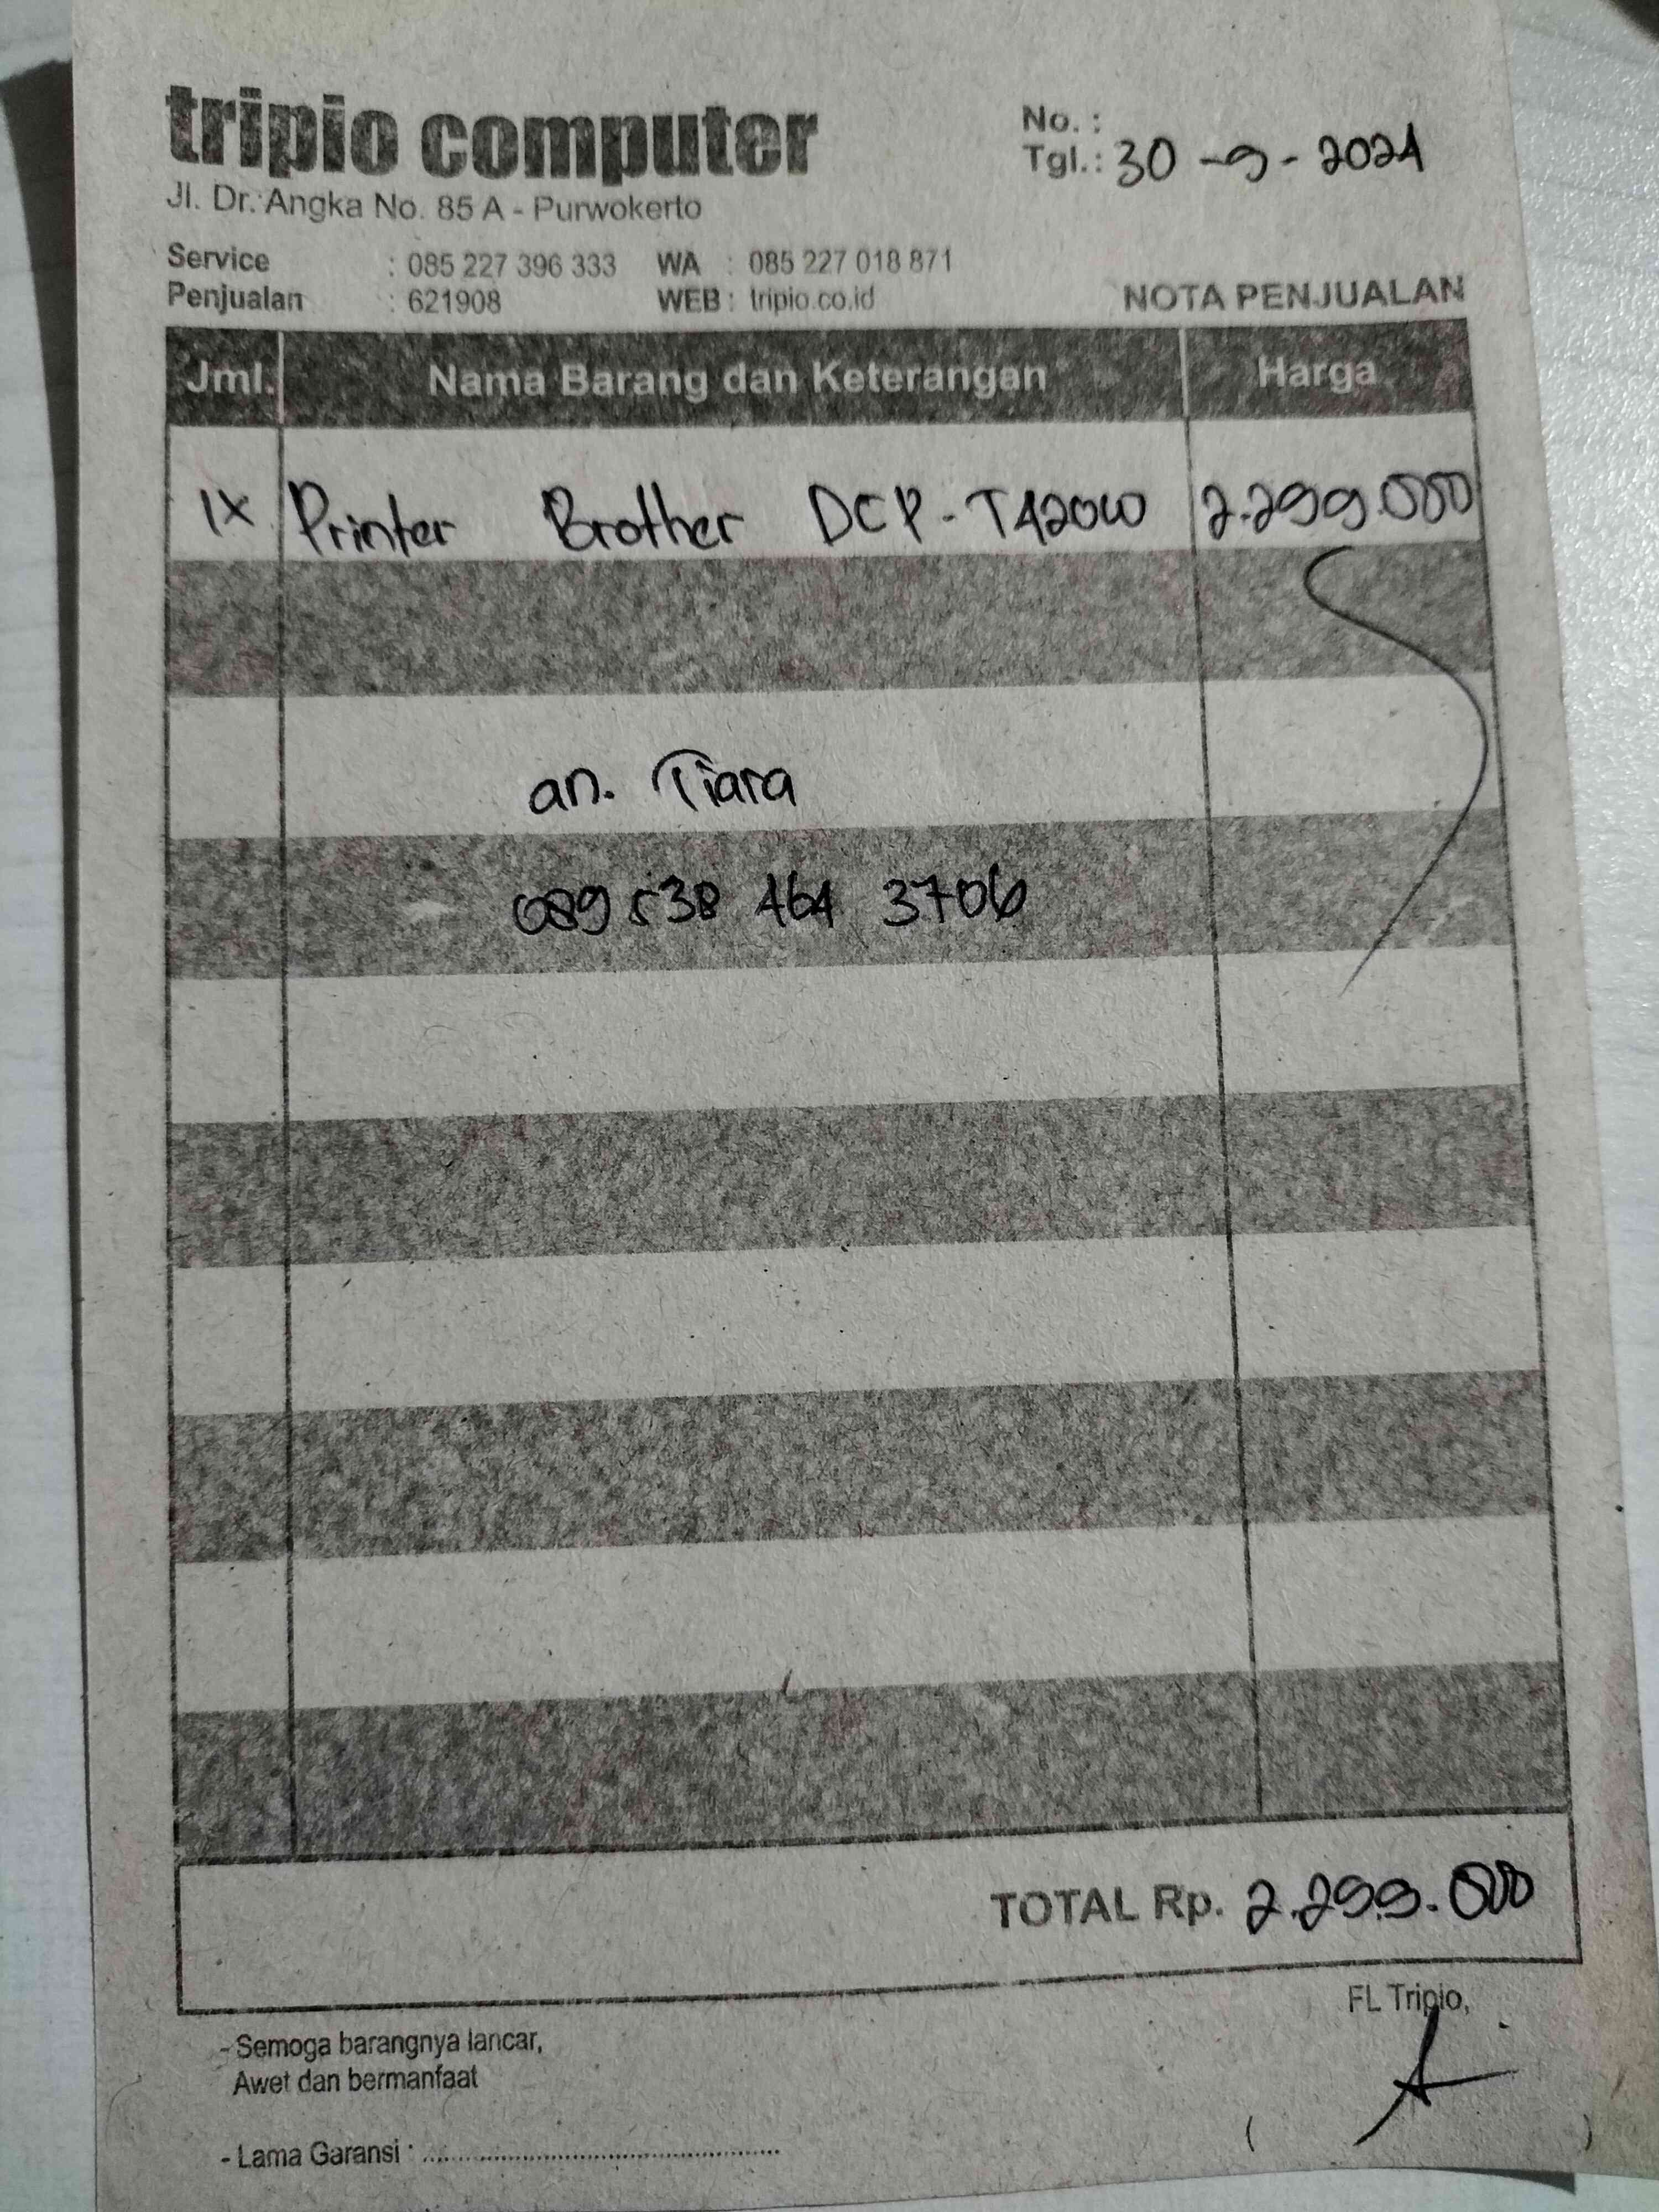 tripio computer
No. :
Tgl.: 30 - 9 - 2024
Jl. Dr. Angka No. 85 A - Purwokerto
Service : 085 227 396 333 WA : 085 227 018 871
Penjualan : 621908 WEB : tripio.co.id
NOTA PENJUALAN
Jml. Nama Barang dan Keterangan Harga
1x Printer Brother DCP-T420W 2.299.000
an. Tiara
089 538 464 3706
TOTAL Rp. 2.299.000
FL Tripio,
- Semoga barangnya lancar,
Awet dan bermanfaat
( )
- Lama Garansi : ....................................................